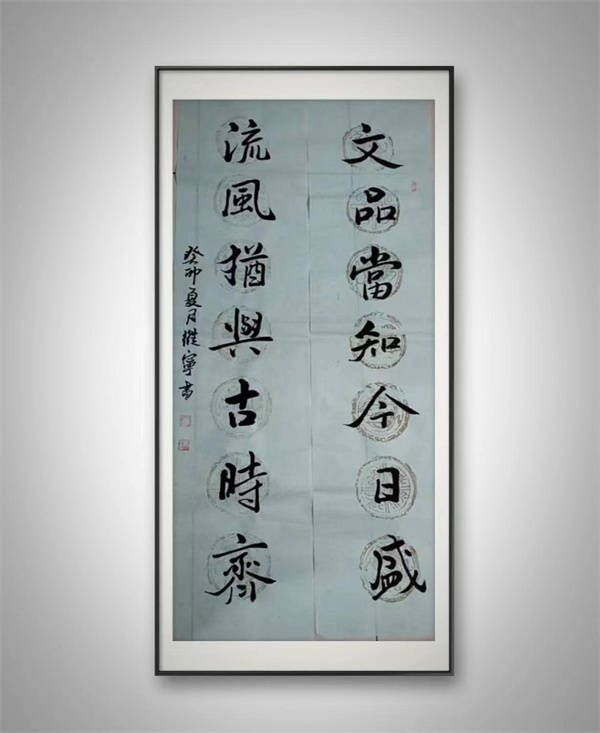 文品當知今日盛
流風猶與古時齊
癸卯夏月 寧書